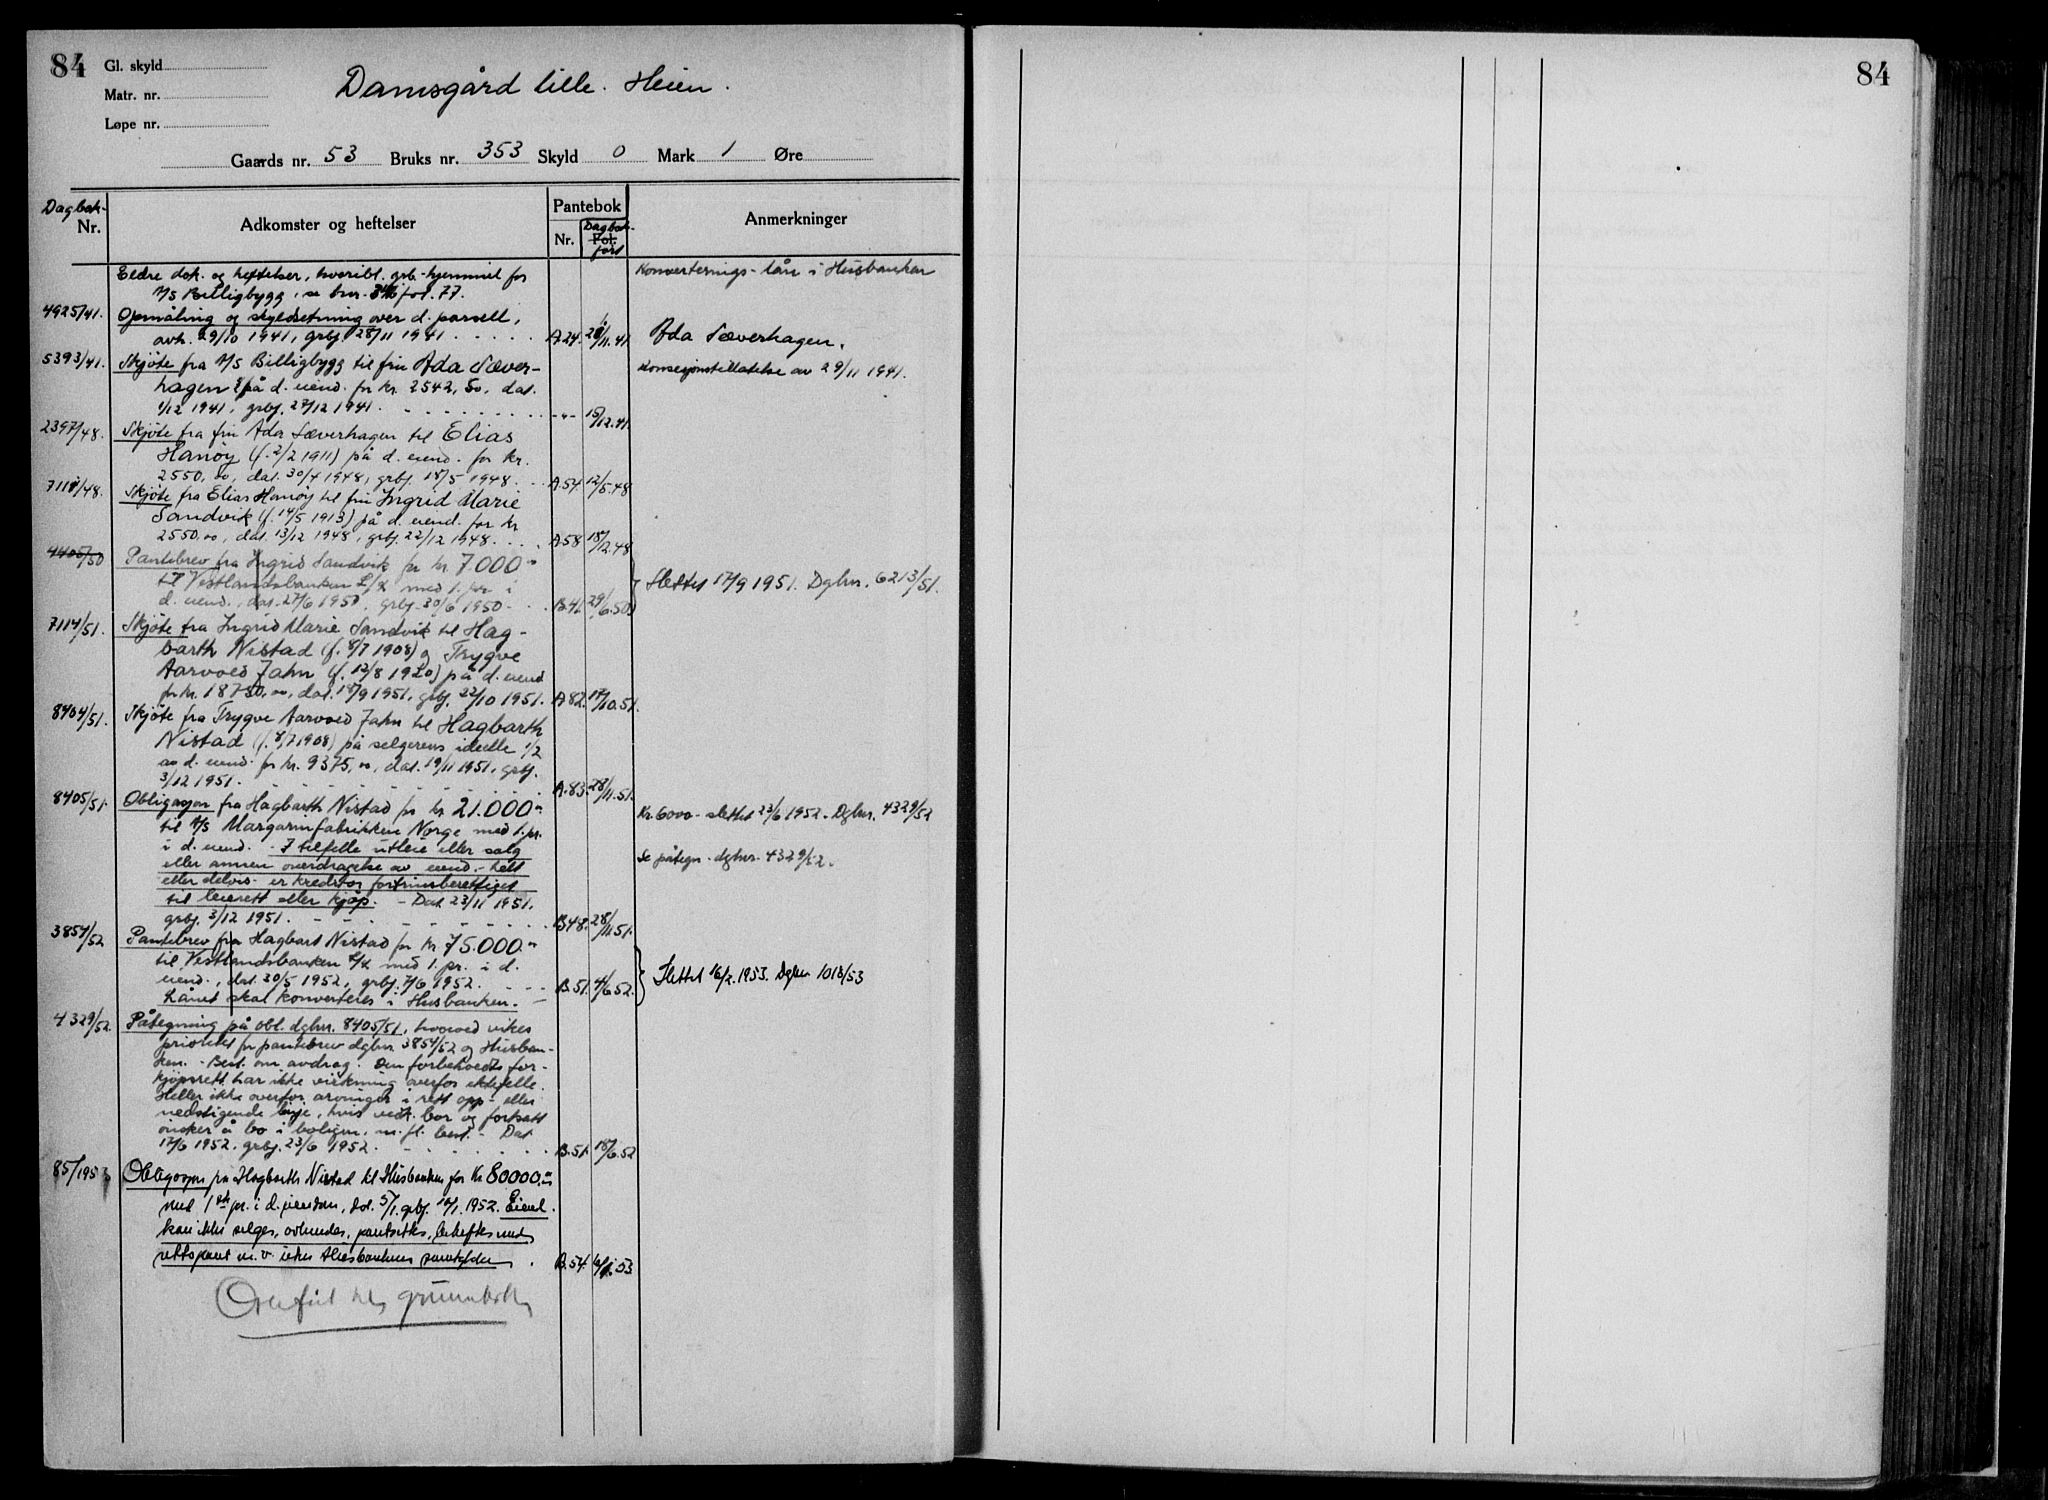 84
Gl. skyld
Matr. nr.
Løpe nr.
Damsgård lille. Heien.
Gaards nr. 53 Bruks nr. 353 Skyld 0 Mark 1 Øre
Dagbok-
Nr.
Adkomster og heftelser
Pantebok
Nr.
Dagbok-
Fol.
ført
Anmerkninger
Eldre dok. og heftelser, hvoribl. grb-hjemmel for
A/S Billigbygg, se bnr. 346 fol. 77.
Konverterings-lån i Husbanken
4925/41. Opmåling og skyldsetning over d. parsell,
avh. 29/10 1941, grbj. 28/11 1941 . . . . . A.24. /11.41
Ada Sæverhagen.
5393/41. Skjøte fra A/S Billigbygg til fru Ada Sæver-
hagen på d. eiend. for kr. 2542,50, dat.
1/12 1941, grbj. 27/12 1941. . . . . . . . . -"- 15/12.41.
Konsesjonstillatelse av 29/11 1941.
2397/48. Skjøte fra fru Ada Sæverhagen til Elias
Hanøy (f. 2/2 1911) på d. eiend. for kr.
2550,00, dat. 30/4 1948, grbj. 18/5 1948. . . A.54 12/5.48
7118/48. Skjøte fra Elias Hanøy til fru Ingrid Marie
Sandvik (f. 14/5 1913) på d. eiend. for kr
2550,00, dat. 13/12 1948, grbj. 22/12 1948. . . . A.58 18/12.48
4405/50 Pantebrev fra Ingrid Sandvik for kr 7000.-
til Vestlandsbanken L/L med 1. pr. i
d. eiend., dat. 27/6 1950, grbj. 30/6 1950 - . . B.41. 29/6.50.
Slettet 17/9 1951. Dgbnr. 6213/51.
7114/51. Skjøte fra Ingrid Marie Sandvik til Hag-
barth Nistad (f. 8/7 1908) og Trygve
Aarvold Jahn (f. 12/8 1920) på d. eiend
for kr. 18750,00, dat. 18/9 1951, grbj. 22/10 1951. A.82. 17/10.51.
8404/51. Skjøte fra Trygve Aarvold Jahn til Hagbarth
Nistad (f. 8/7 1908) på selgerens ideelle 1/2
av d. eiend. for kr. 9375,00, dat. 19/11 1951, grbj.
3/12 1951. . . . . . . . . . A.83. 28/11.51.
8405/51. Obligasjon fra Hagbarth Nistad for kr 21.000.-
til A/S Margarinfabrikken Norge med 1. pr.
i d. eiend. - I tilfelle utleie eller salg
eller annen overdragelse av eiend. - helt
eller delvis - er kreditor fortrinsberettiget
til leierett eller kjøp. - Dat 23/11 1951.
grbj. 3/12 1951. - - - - - - - B48. 28/11.51.
Kr. 6000.- slettet 23/6 1952. Dgbnr. 4329/52
Se påtegn. dgbnr. 4329/52.
3854/52 Pantebrev fra Hagbart Nistad for kr. 75.000.-
til Vestlandsbanken L/L med 1. pr. i d.
eiend., dat. 30/5 1952, grbj. 7/6 1952. - - - B.51. 4/6.52.
Lånet skal konverteres i Husbanken. -
Slettet 16/2. 1953. Dgbnr 1018/53
4329/52. Påtegning på obl. dgbnr. 8405/51, hvorved vikes
prioritet for pantebrev dgbnr 3854/52 og Husban-
ken. - Best. om avdrag. Den forbeholdte for-
kjøpsrett har ikke virkning overfor ektefelle.
Heller ikke overfor arvinger i rett opp- eller
nedstigende linje, hvis vedk. bor og fortsatt
ønsker å bo i boligen, m. fl. best. - Dat
17/6 1952. grbj. 23/6 1952. - - . . . . . B.51. 18/6.52
85/1953 Obligasjon fra Hagbarth Nistad til Husbanken for Kr 80000.-
med 1ste pr. i d. eiendom, dat. 5/1. grbj. /1. 1952. Eiend.
kan ikke selges, avhendes, pantsettes, beheftes med
rettspant m.v. uten Husbankens samtykke . B.54. 6/1.53
Overført til grunnbok
84